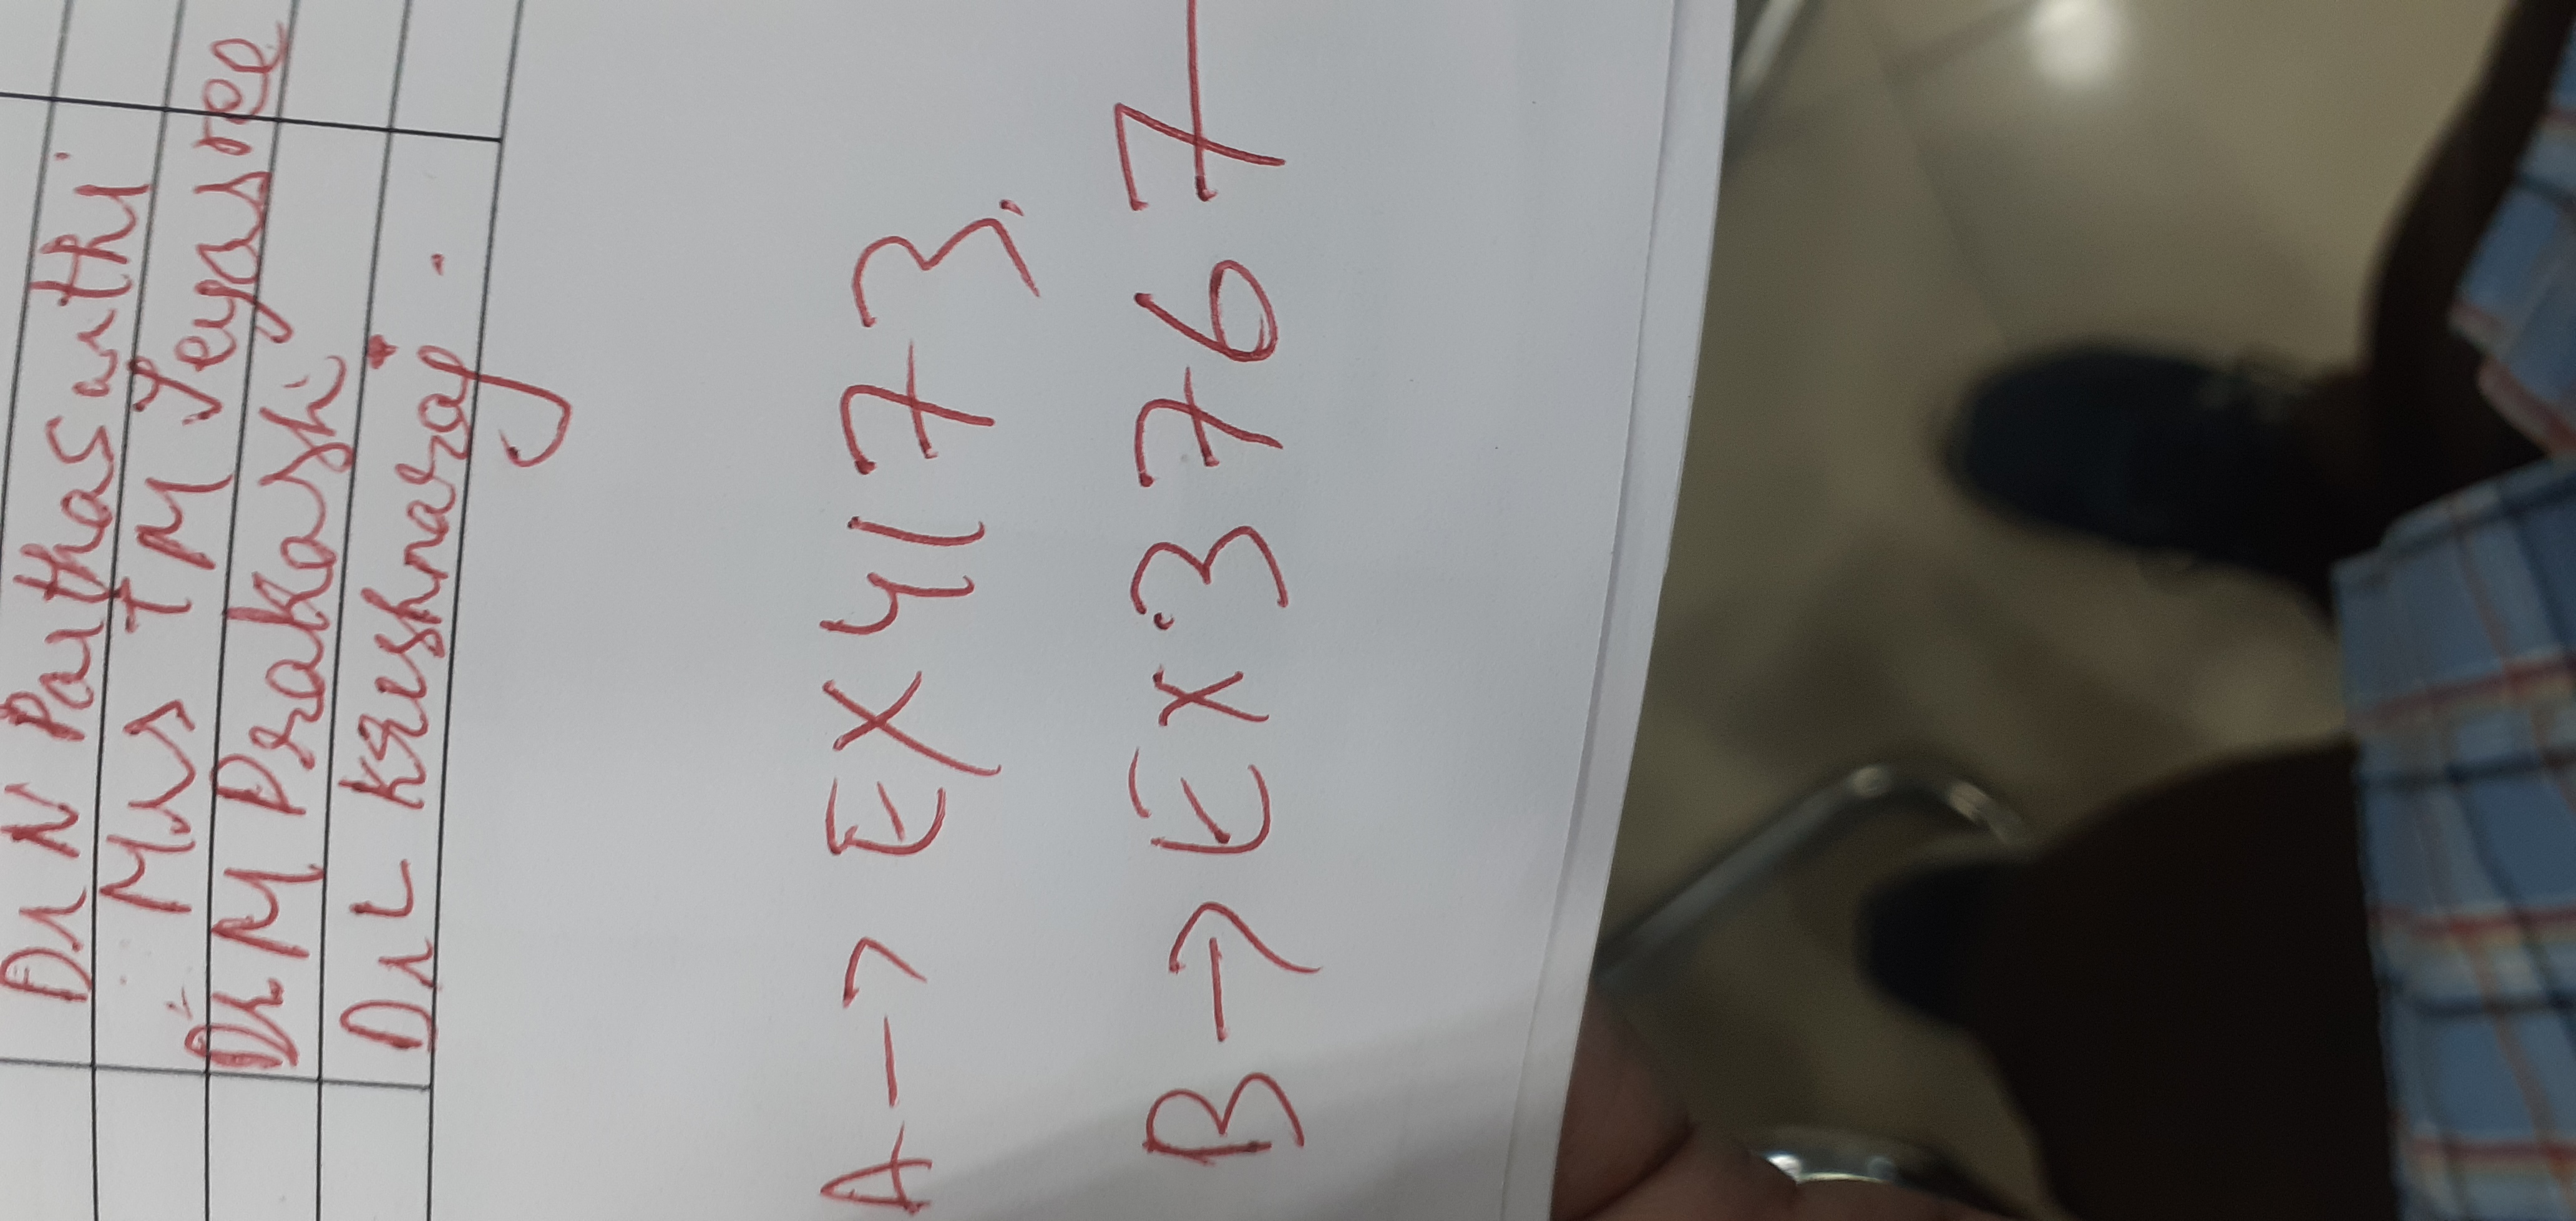 Dr N Parthasarthi
Mrs T M Jeyasree
Dr M Prakash
Dr L Krishnaraj.
A → EX4173.
B → EX3767